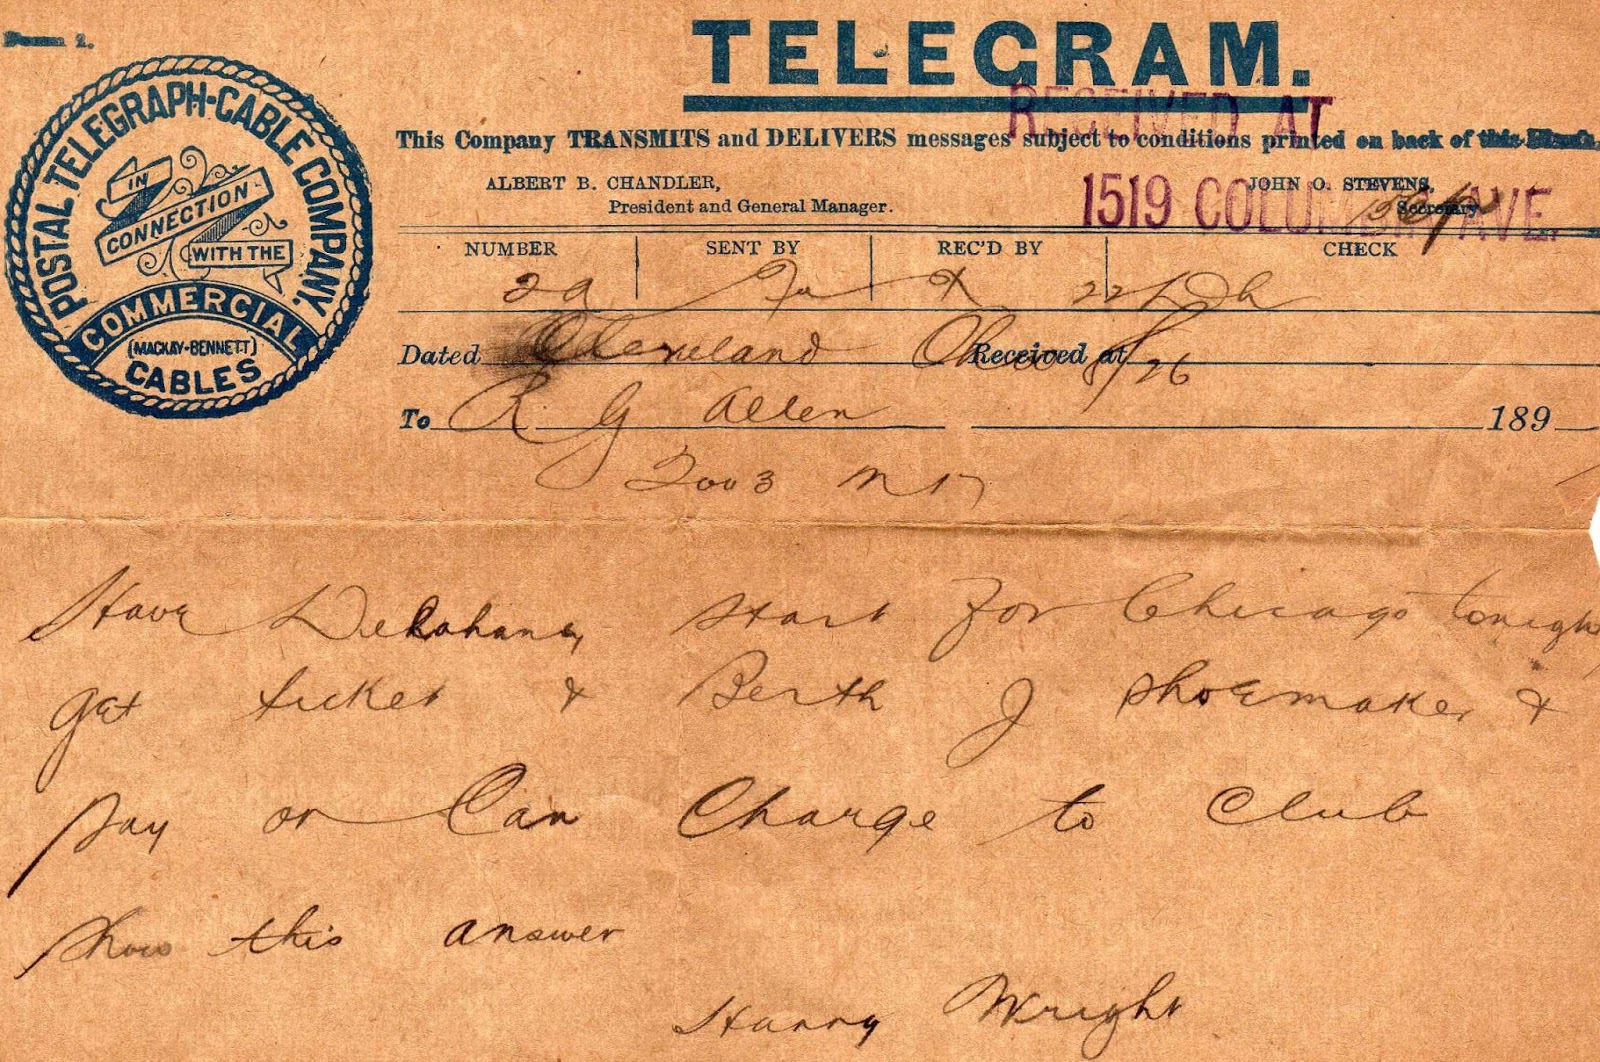 TELEGRAM.
RECEIVED AT
POSTAL TELEGRAPH-CABLE COMPANY.
IN
CONNECTION
WITH THE
COMMERCIAL
(MACKAY-BENNETT)
CABLES
This Company TRANSMITS and DELIVERS messages subject to conditions printed on back of this
ALBERT B. CHANDLER,
President and General Manager.
JOHN O. STEVENS,
Secretary
1519 COLUMBIA AVE.
NUMBER SENT BY REC'D BY CHECK
22
Dated Cleveland Ohio Received at 8/26
To R G Allen 189
2003 N 17
Have Delahanty start for Chicago tonight
get ticket & Berth J Shoemaker &
pay or Can Charge to Club
Show this answer
Harry Wright